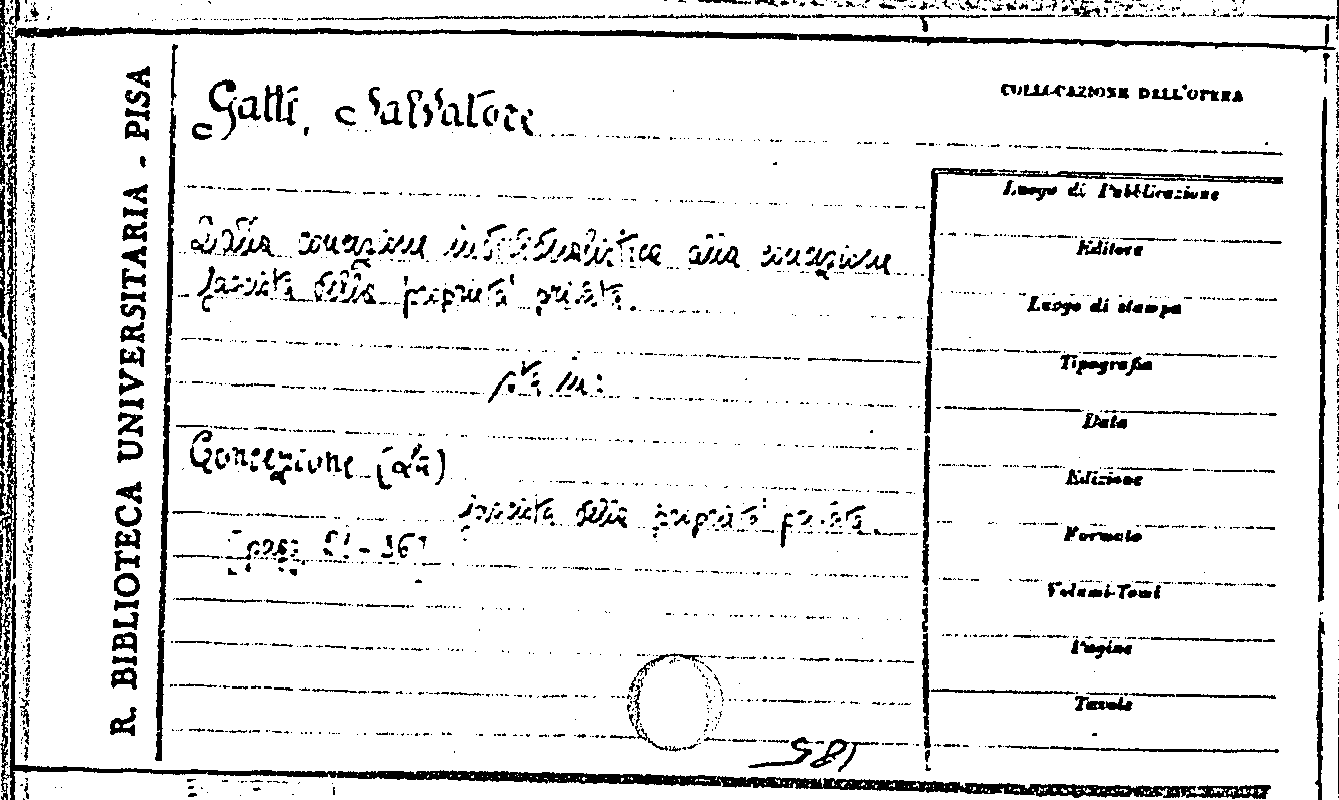 R. BIBLIOTECA UNIVERSITARIA - PISA
Gatti, Salvatore
COLLOCAZIONE DELL'OPERA
Dalla concezione individualistica alla concezione
fascista della proprietà privata.
sta in:
Concezione (La)
fascista della proprietà privata.
[pag. 21-36]
Luogo di Pubblicazione
Editore
Luogo di stampa
Tipografia
Data
Edizione
Formato
Volumi-Tomi
Pagine
Tavole